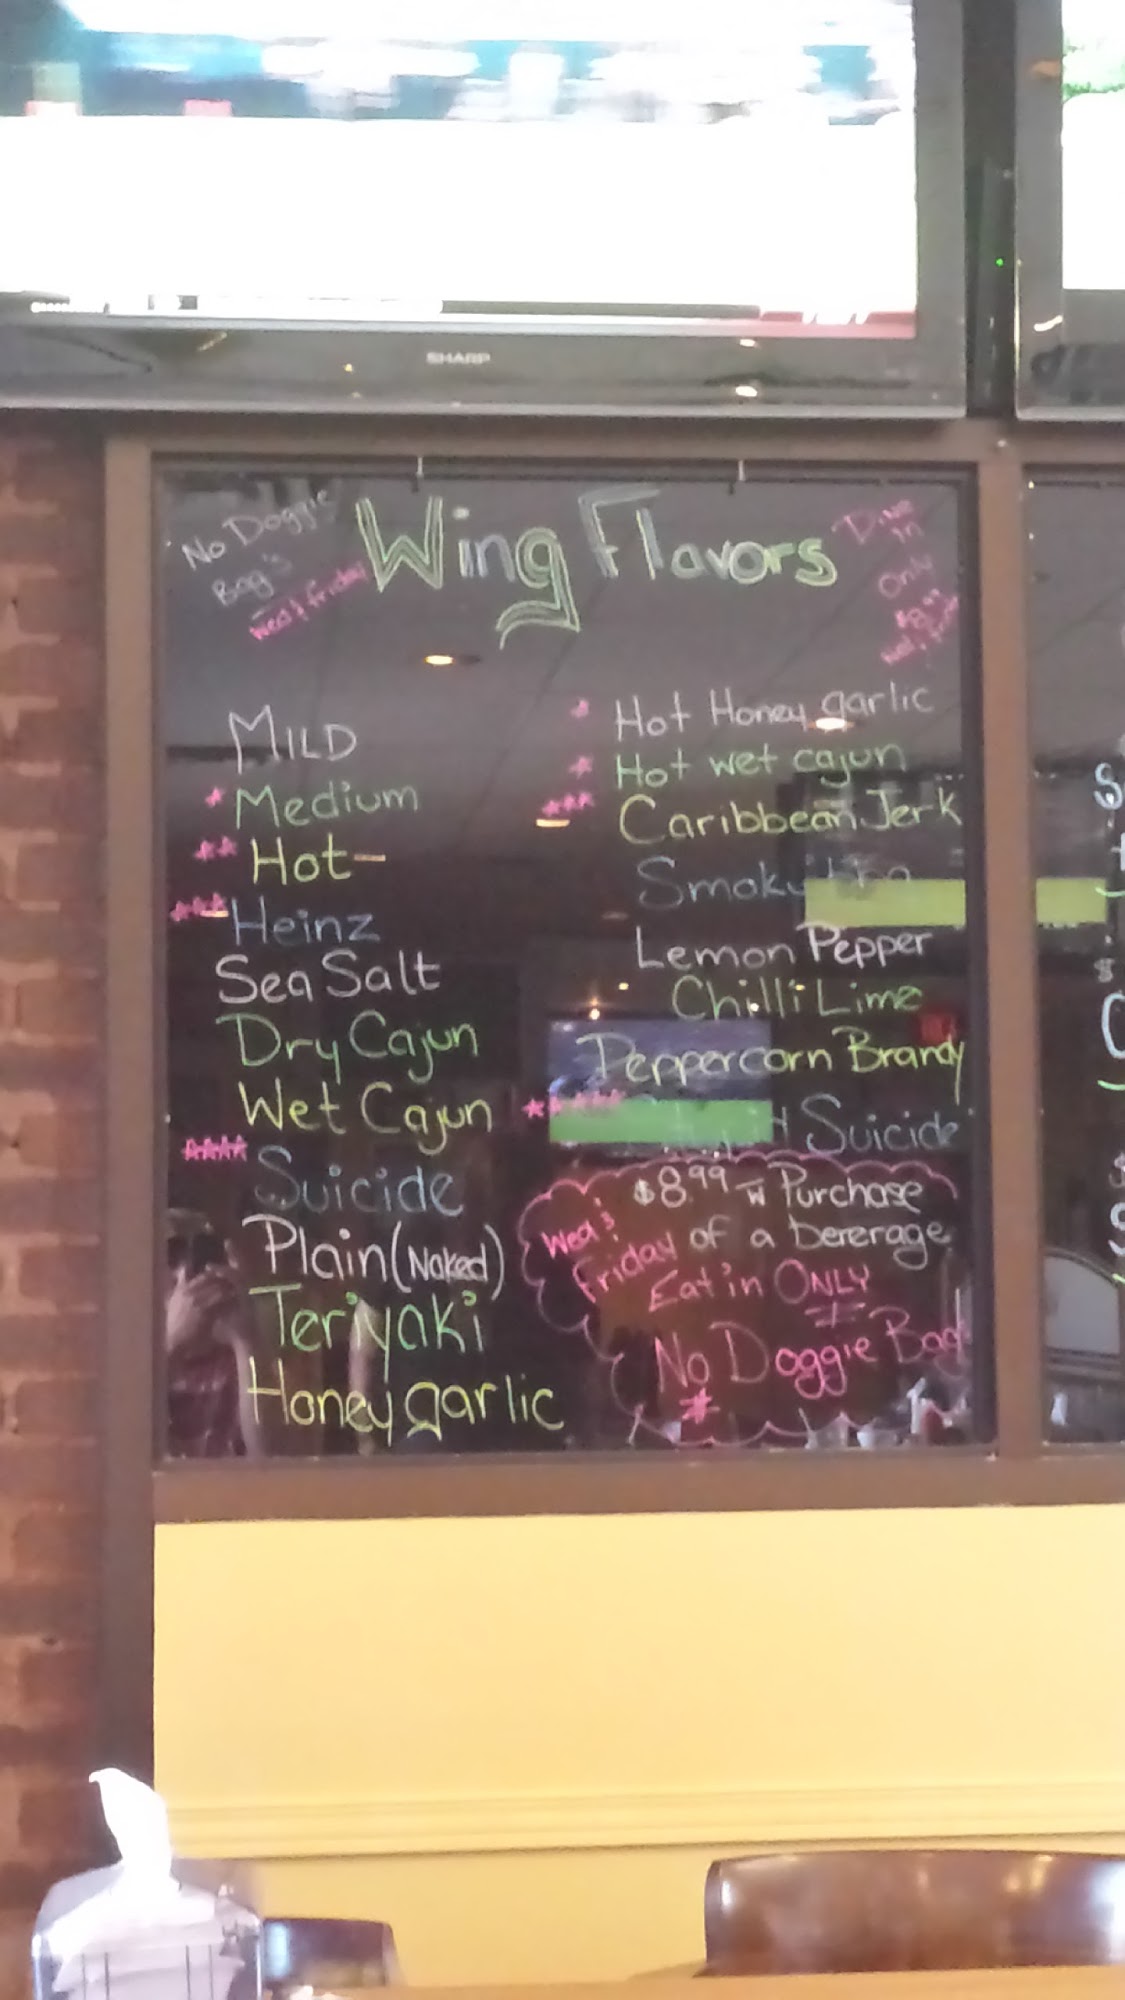 SHARP
No Doggie
Bag's
Wed & Friday
Wing Flavors
Dine
in
Only
MILD
* Medium
** Hot-
*** Heinz
Sea Salt
Dry Cajun
Wet Cajun
**** Suicide
Plain (Naked)
Teriyaki
Honey garlic
* Hot Honey garlic
* Hot wet cajun
*** Caribbean Jerk
Smoky
Lemon Pepper
Chilli Lime
Peppercorn Brandy
Suicide
Wed &
Friday
$8.99 w Purchase
of a bererage
Eat'in ONLY
No Doggie Bag